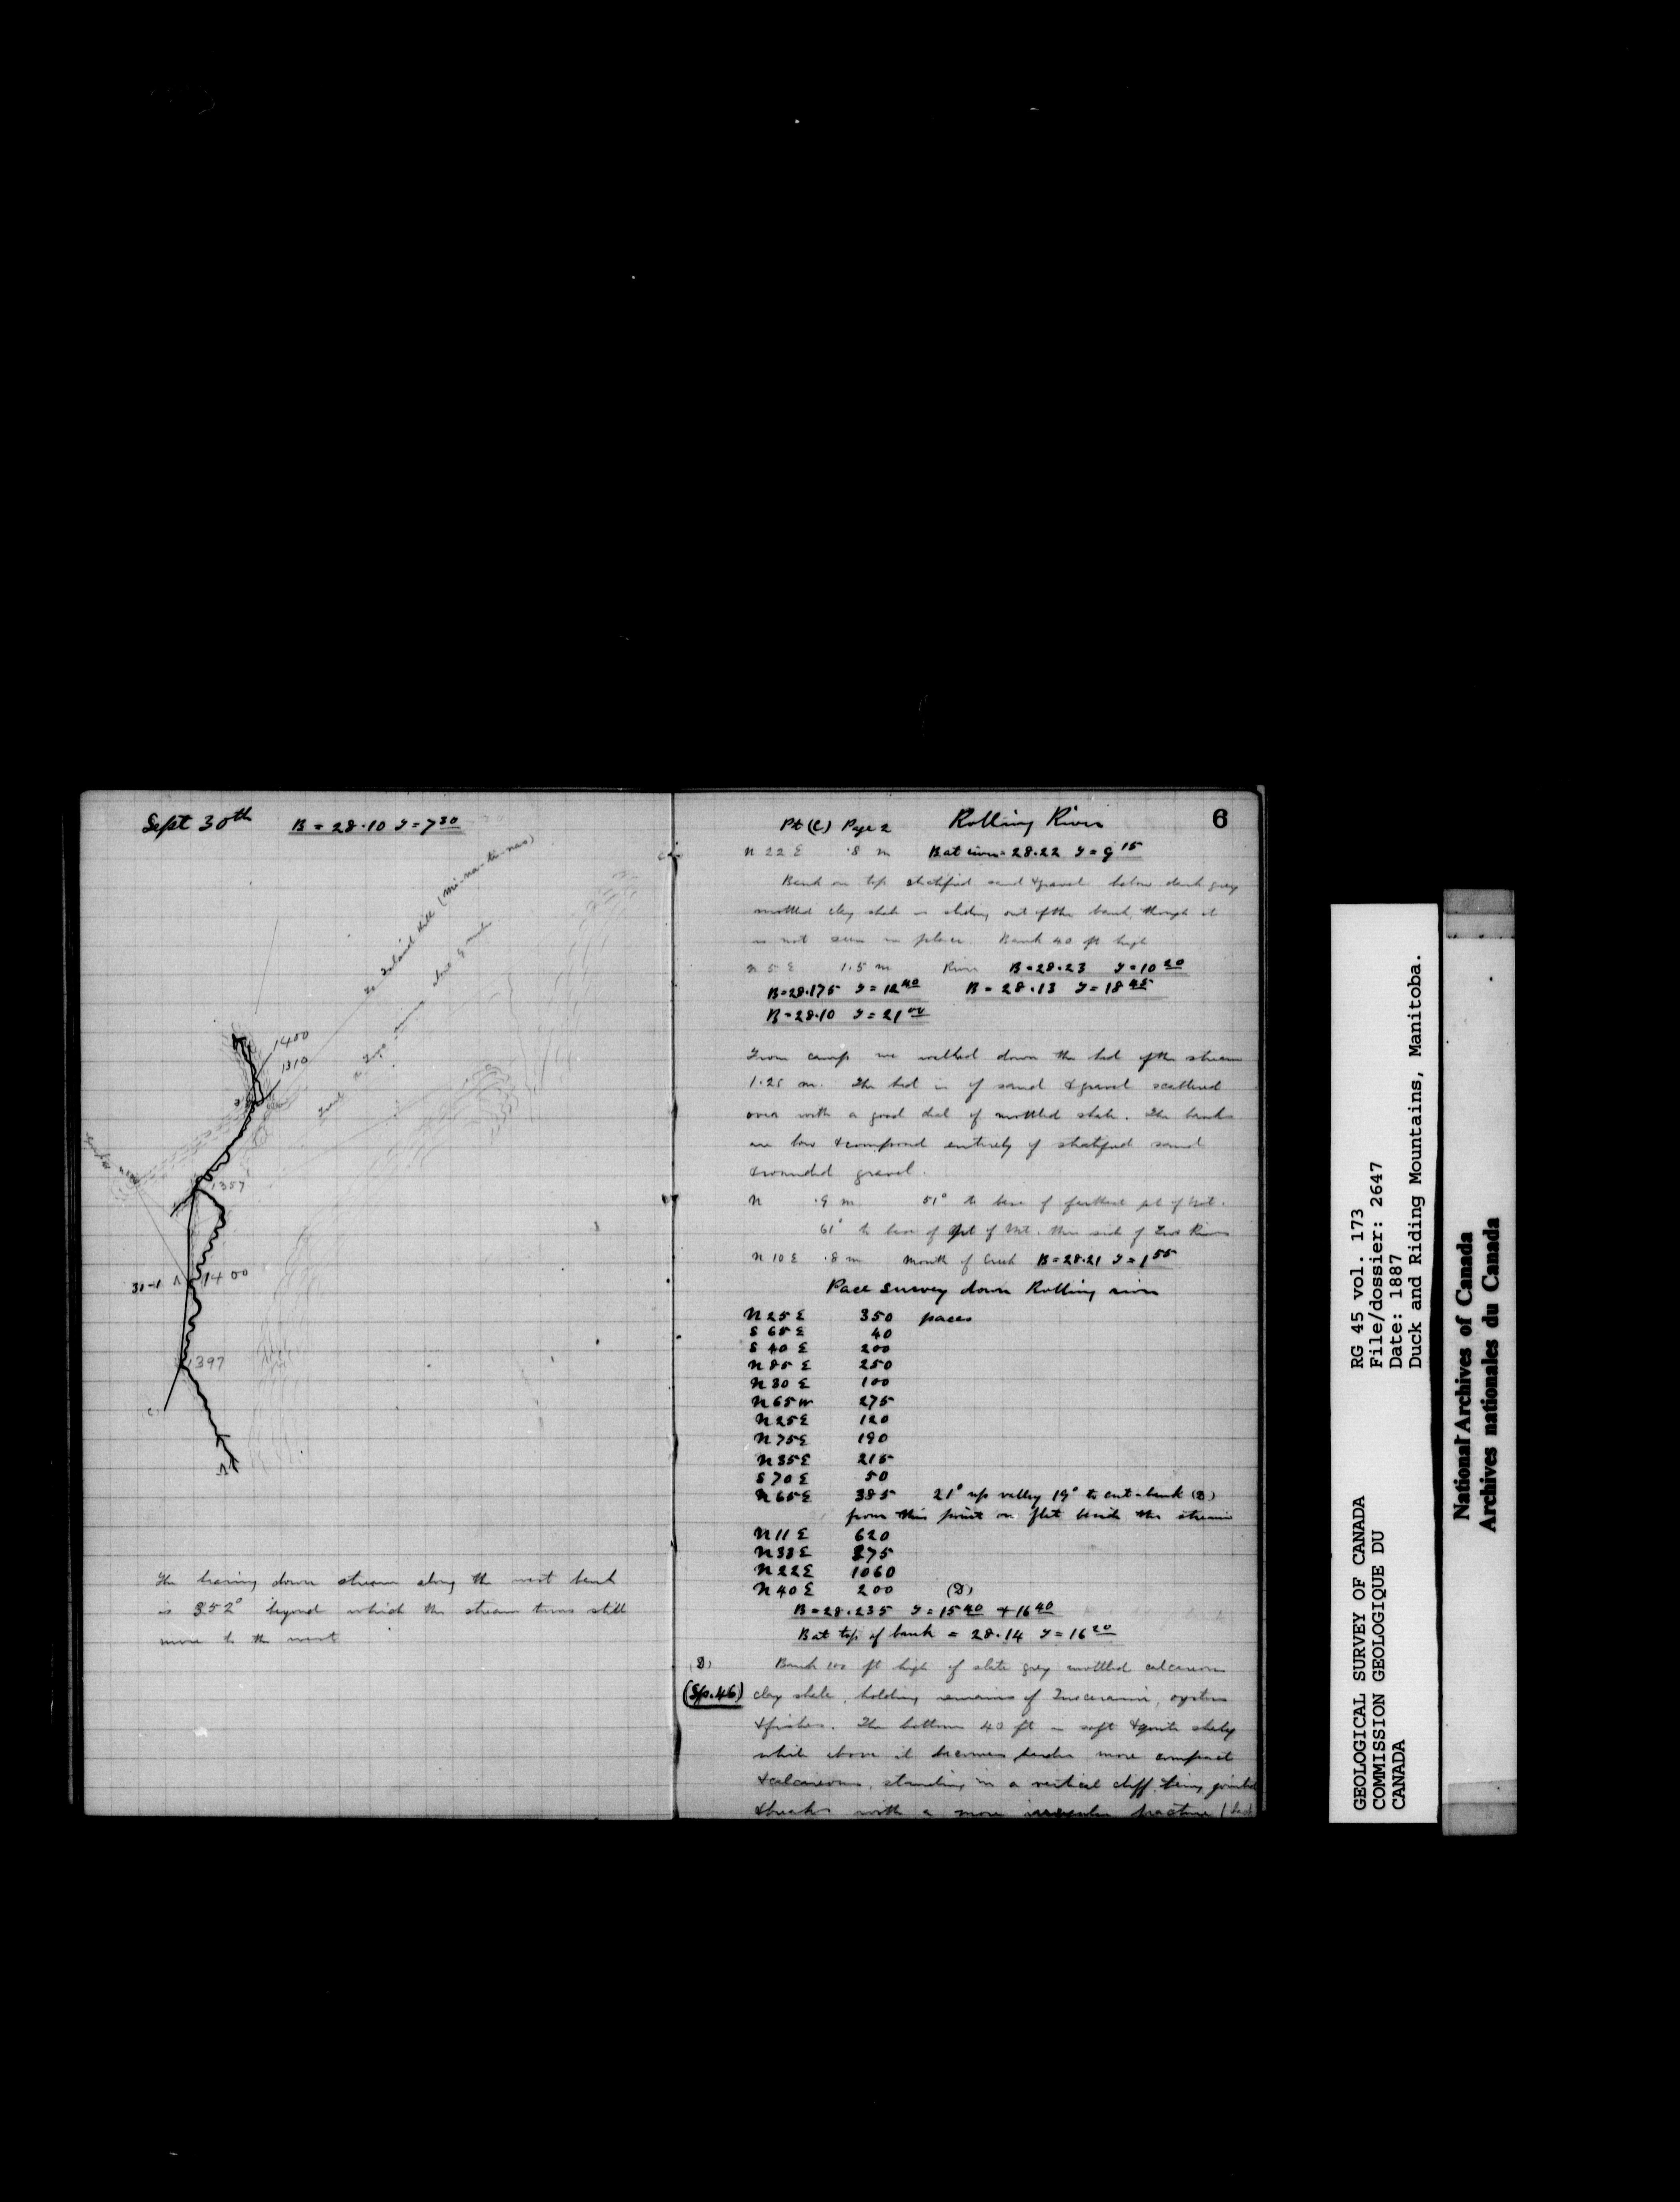 Sept 30th B = 28.10 T = 7 30
To Island Hill (Mi-na-ti-nas)
1400
1310
1357
30-1 1400
1397
C.
The bearing down stream along the west bank
is 352° beyond which the stream turns still
more to the west
6
Pt (C) Page 2 Rolling River
N 22 E .8 m B at river = 28.22 T = 9 15
Bank on top stratified sand & gravel below dark grey
mottled clay shale is sliding out of the bank, though it
is not seen in place. Bank 40 ft high
N 5 E 1.5 m River B = 28.23 T = 10 20
B = 28.175 T = 12 40 B = 28.13 T = 18 45
B = 28.10 T = 21 00
From camp we walked down the bed of the stream
1.25 m. The bed is of sand & gravel scattered
over with a good deal of mottled shale. The banks
are low & composed entirely of stratified sand
& rounded gravel.
N .9 m 51° to base of farthest pt of Mt.
61° to base of pt of Mt. this side of River
N 10 E .8 m Mouth of Creek B = 28.21 T = 1 55
Pace survey down Rolling river
N 25 E 350 paces
S 65 E 40
S 40 E 200
N 85 E 250
N 30 E 100
N 65 W 275
N 25 E 120
N 75 E 190
N 35 E 215
S 70 E 50
N 65 E 385 21° up valley 19° to cut-bank (D)
from this point on flat beside the stream
N 11 E 620
N 33 E 275
N 22 E 1060
N 40 E 200 (D)
B = 28.235 T = 15 40 + 16 40
B at top of bank = 28.14 T = 16 20
(D) Bank 100 ft high of slate grey mottled calcareous
(Sp.46) clay shale, holding remains of Inocerami, oysters
& fishes. The bottom 40 ft is soft & quite shaly
while above it becomes harder more compact
& calcareous, standing in a vertical cliff, being jointed
& breaks with a more irregular fracture
GEOLOGICAL SURVEY OF CANADA
COMMISSION GEOLOGIQUE DU
CANADA
RG 45 vol. 173
File/dossier: 2647
Date: 1887
Duck and Riding Mountains, Manitoba.
National Archives of Canada
Archives nationales du Canada